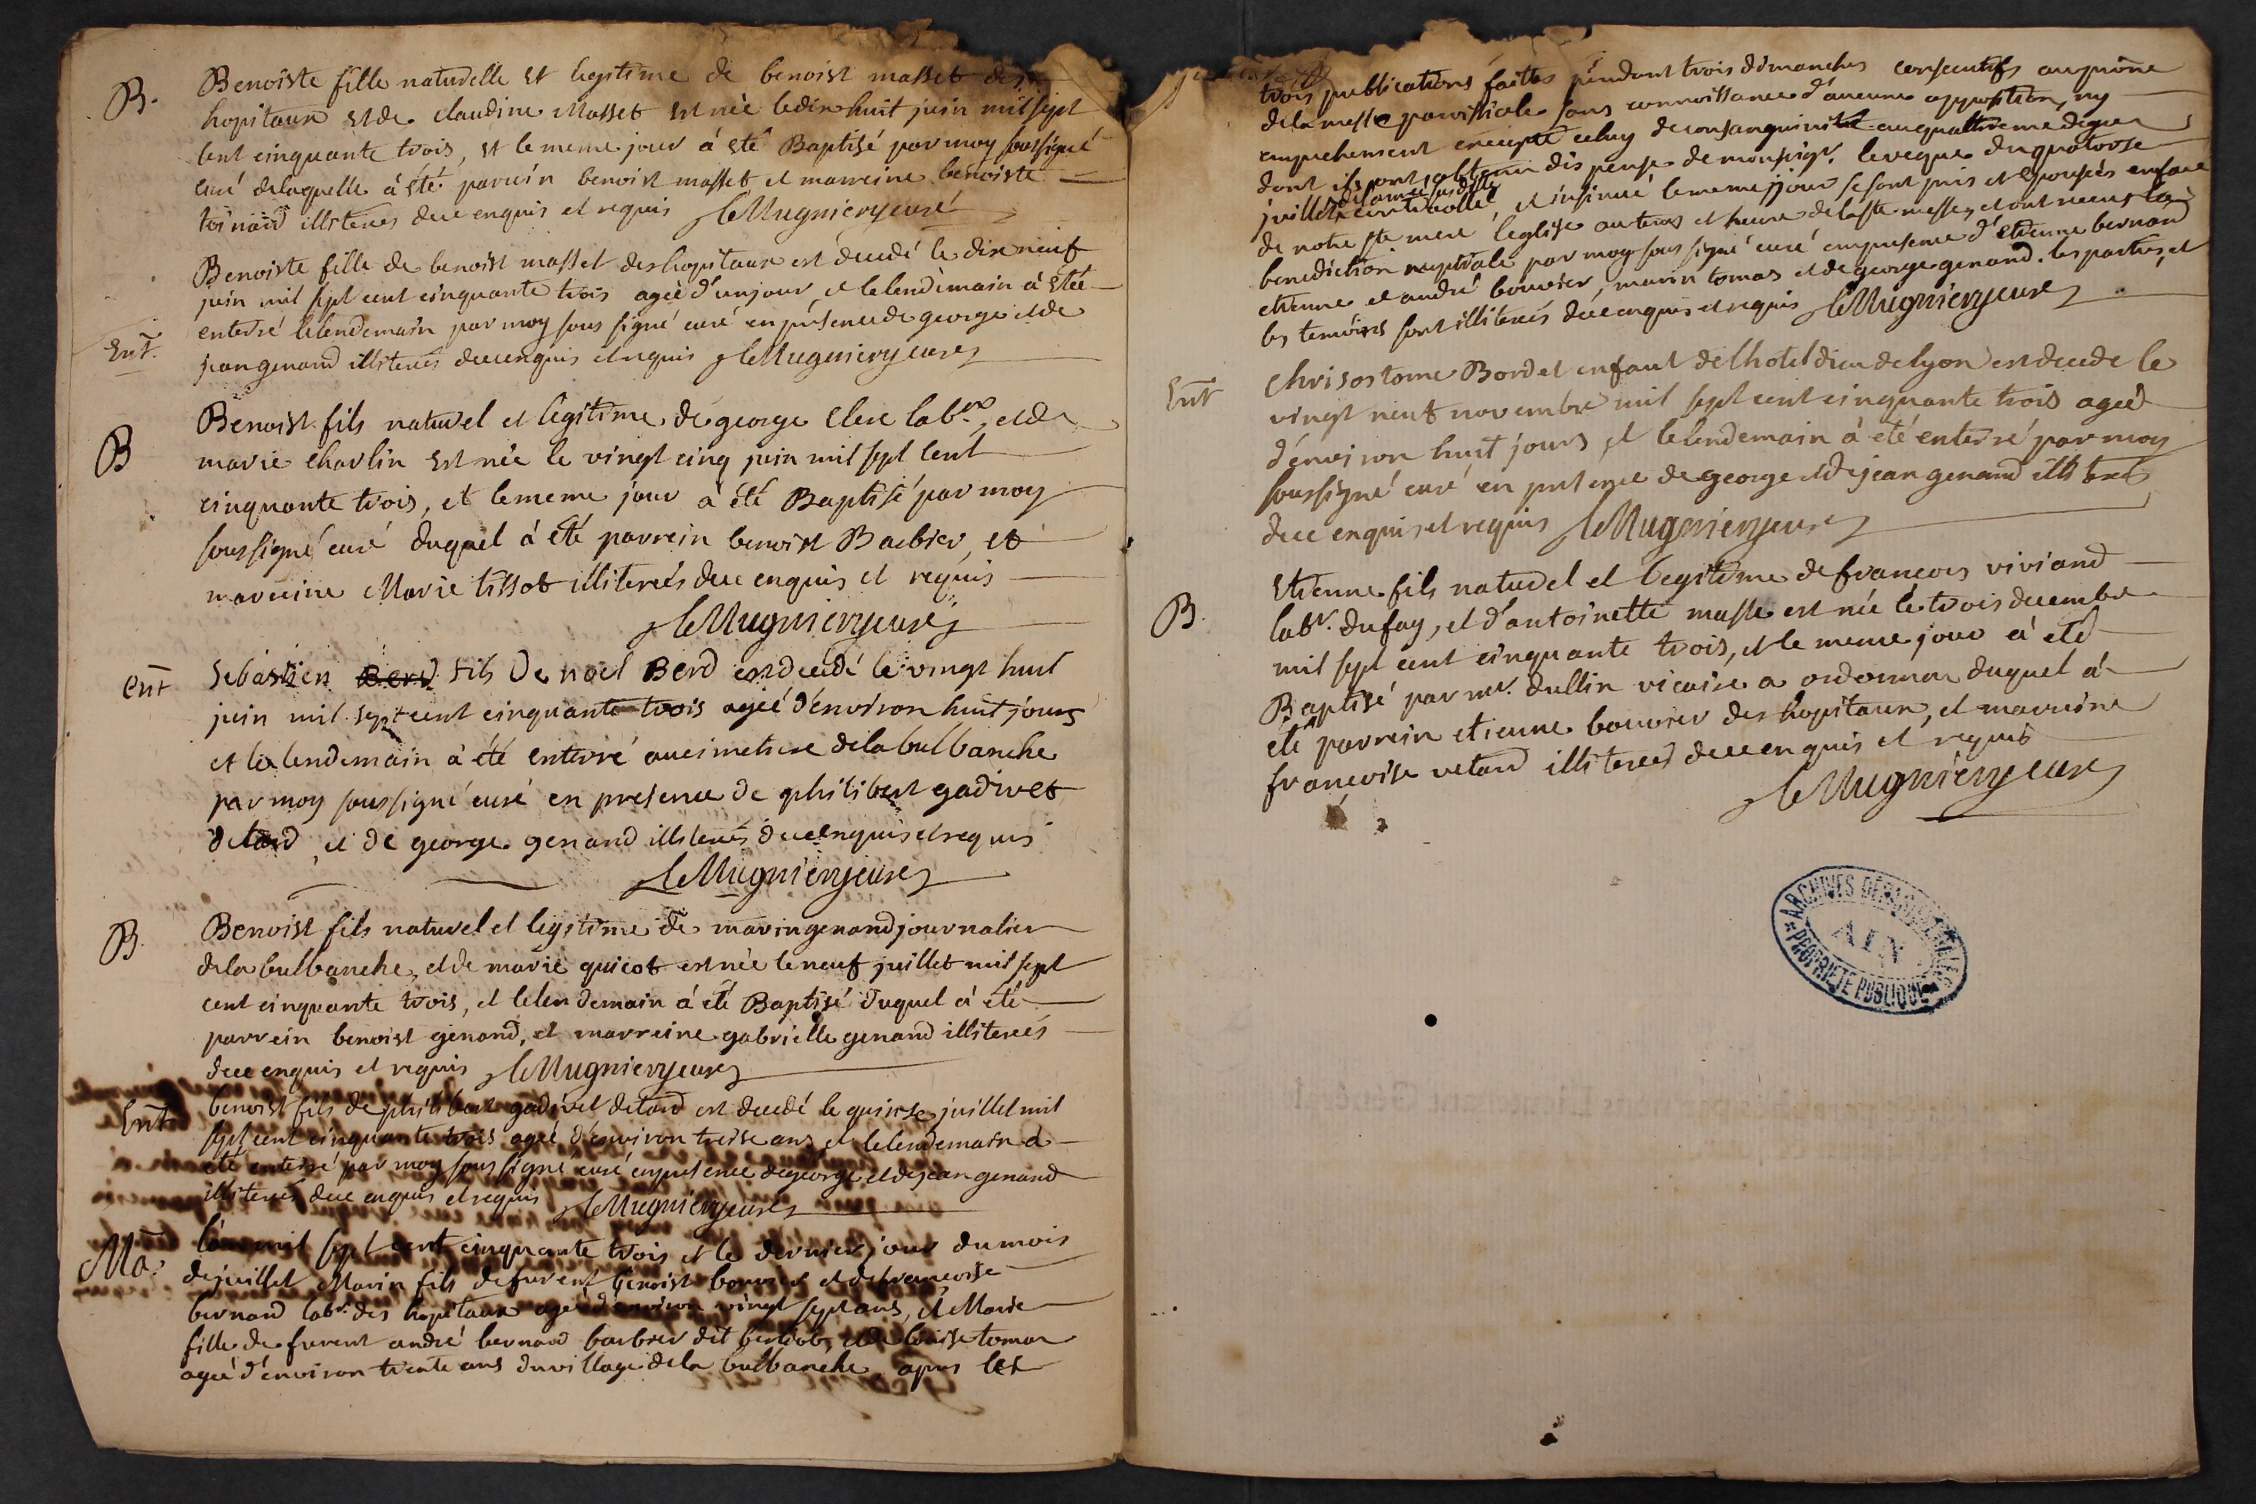 B. Benoiste fille naturelle et legitime de benoist masset des
hopitaux et de claudine Masset est née le dix huit juin mil sept
cent cinquante trois, et le meme jour à eté Baptisé par moy soussigné
curé de laquelle à eté parrein benoist masset et marreine benoiste
toinard illiterés de ce enquis et requis leMugnieryeuré
Benoiste fille de benoist masset des hopitaux est decedé le dix neuf
juin mil sept cent cinquante trois ageé d'un jour, et le lendemain à eté
Ent. enterré le lendemain par moy sous signé curé en presence de george et de
jean genand illiterés de ce enquis et requis leMugniery curé
B Benoist fils naturel et legitime de george Clere labr, et de
marie charlin est née le vingt cinq juin mil sept cent
cinquante trois, et le meme jour à été Baptisé par moy
soussigné curé duquel à été parrein benoist Barbier, et
marreine Marie tissot illiterés de ce enquis et requis
leMugniery curé
ent Sebastien Berd fils De noel Berd est decedé le vingt huit
juin mil sept cent cinquante trois ageé d'environ huit jours
et le lendemain à été enterré au cimetiere de la bulbanche
par moy soussigné curé en presence de philibert gadivet
detard, et de george genand illiterés de ce enquis et requis
leMugniery curé
B. Benoist fils naturel et legitime de marin genand journalier
de la bulbanche, et de marie guicot est née le neuf juillet mil sept
cent cinquante trois, et le lendemain à eté Baptisé duquel à eté
parrein benoist genand, et marreine gabrielle genand illiterés
de ce enquis et requis leMugniery curé
Ent benoist fils de philibert gadivet detard est decedé le quinse juillet mil
sept cent cinquante trois ageé d'environ treise ans et le lendemain à
eté enterré par moy sous signé curé en presence de george et de jean genand
illiterés de ce enquis et requis leMugniery curé
Ma. l'an mil sept cent cinquante trois et le dernier jour du mois
de juillet Marin fils de furent benoist bouvier et de francoise
bernand labr. des hopitaux ageé d'environ vingt sept ans, et Marie
fille de furent andré bernand barbier dit et de Louise tomas
ageé d'environ trente ans du village de la bulbanche, apres les
trois publications faittes pendant trois dimanches consecutifs au prône
de la messe paroissiale sans connoissance d'aucune opposition, ny
empechement excepté celuy de consanguinité au quattrieme degré
dont ils ont obtenu dispense de monseigr. leveque du quatorse
juillet de l'année susditte controllé, et insinué le meme jour se sont pris et epousés en face
de notre ste mere l'eglise au tems et heure de la ste messe, et ont receus la
benediction nuptiale par moy sous signé curé en presence d'etienne bernand
etienne et andré bouvier, marin tomas et de george genand. les parties, et
les temoins sont illiterés de ce enquis et requis leMugniery curé
Ent Chrisostome Bordet enfant de l'hotel dieu de lyon est decede le
vingt neuf novembre mil sept cent cinquante trois ageé
d'environ huit jours, et le lendemain à eté enterré par moy
soussigné curé en presence de george et de jean genand illiterés
de ce enquis et requis leMugniery curé
B. Etienne fils naturel et legitime de francois viviand
labr. dufay, et d'antoinette masse est née le trois decembre
mil sept cent cinquante trois, et le meme jour à eté
Baptisé par mr. dullin vicaire a ordonnas duquel à
eté parrein etienne bouvier des hopitaux, et marreine
francoise vetard illiterés de ce enquis et requis
leMugniery curé
ARCHIVES DÉPARTEMENTALES
AIN
PROPRIÉTÉ PUBLIQUE